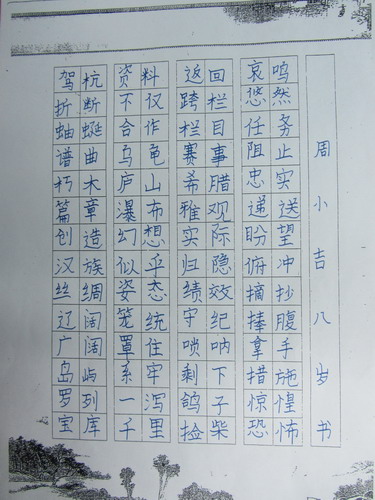 驾杭
折断
蚰蜒
谱曲
朽木
篇章
创造
汉族
丝绸
辽阔
广阔
岛屿
罗列
宝库
资料
不仅
合作
乌龟
庐山
瀑布
幻想
似乎
姿态
笼统
罩住
系牢
一泻
千里
返回
跨栏
栏目
赛事
希腊
雅观
实际
归隐
绩效
守纪
唢呐
剩下
鸽子
捡柴
哀鸣
悠然
任务
阻止
忠实
递送
盼望
俯冲
摘抄
捧腹
拿手
措施
惊惶
恐怖
周小吉八岁书